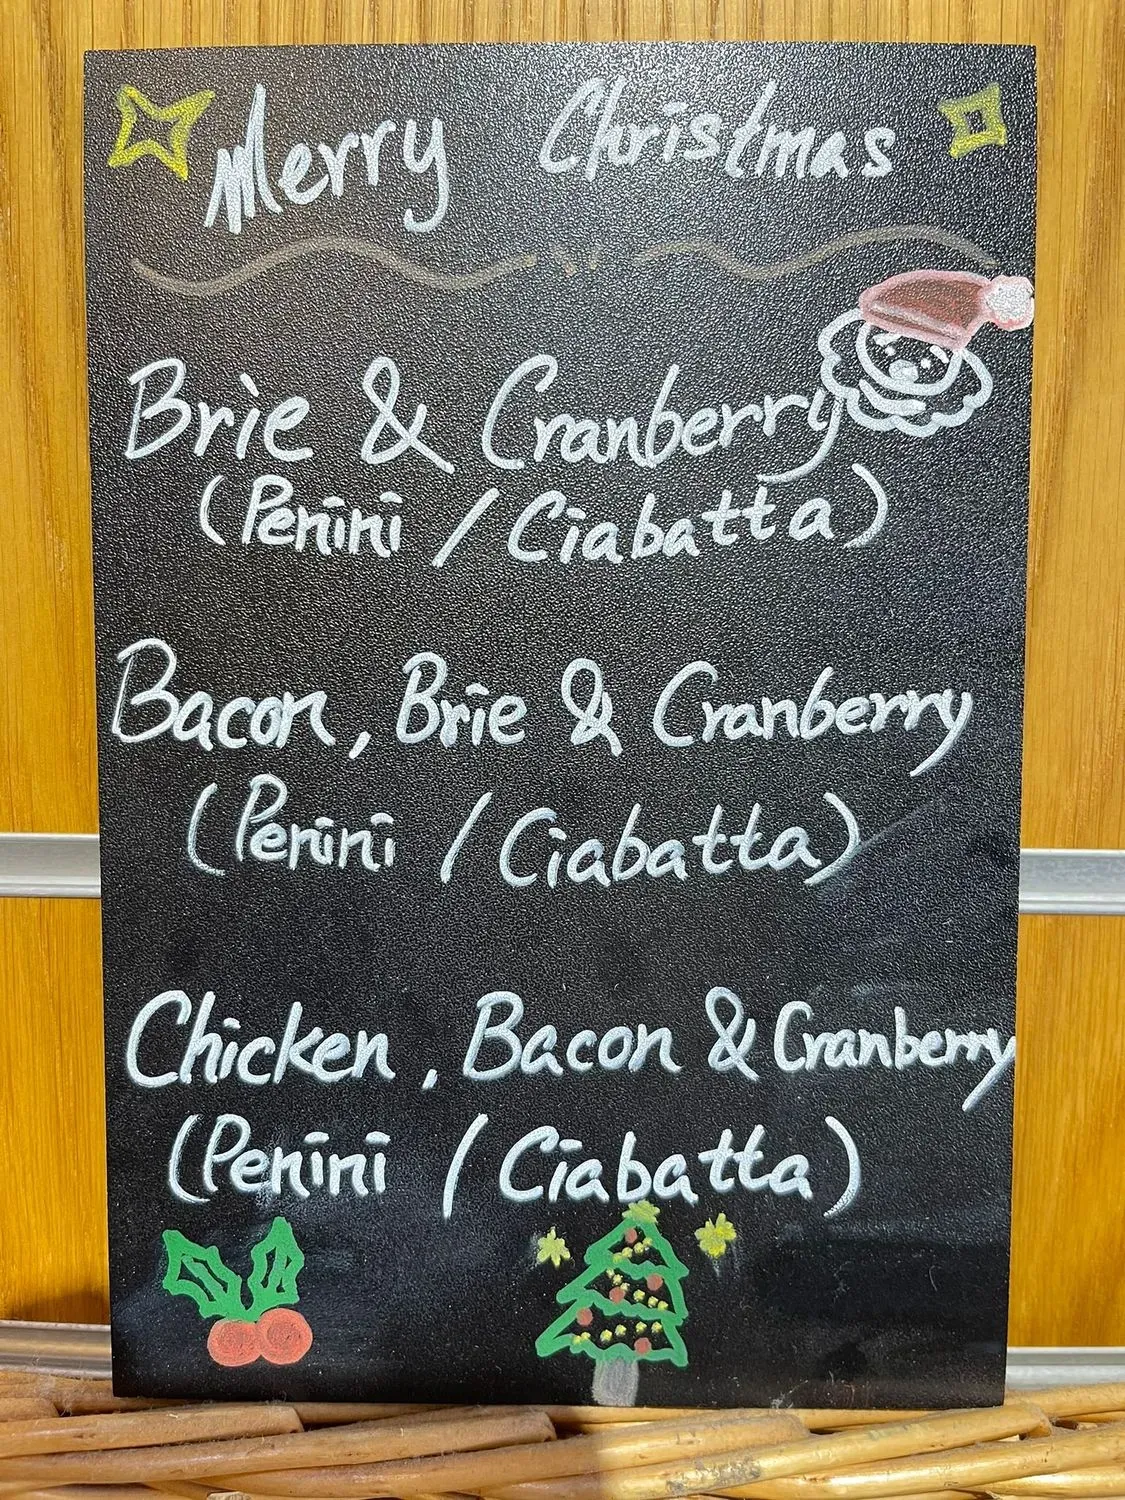 Merry Christmas
Brie & Cranberry
(Penini / Ciabatta)
Bacon, Brie & Cranberry
(Penini / Ciabatta)
Chicken, Bacon & Cranberry
(Penini / Ciabatta)